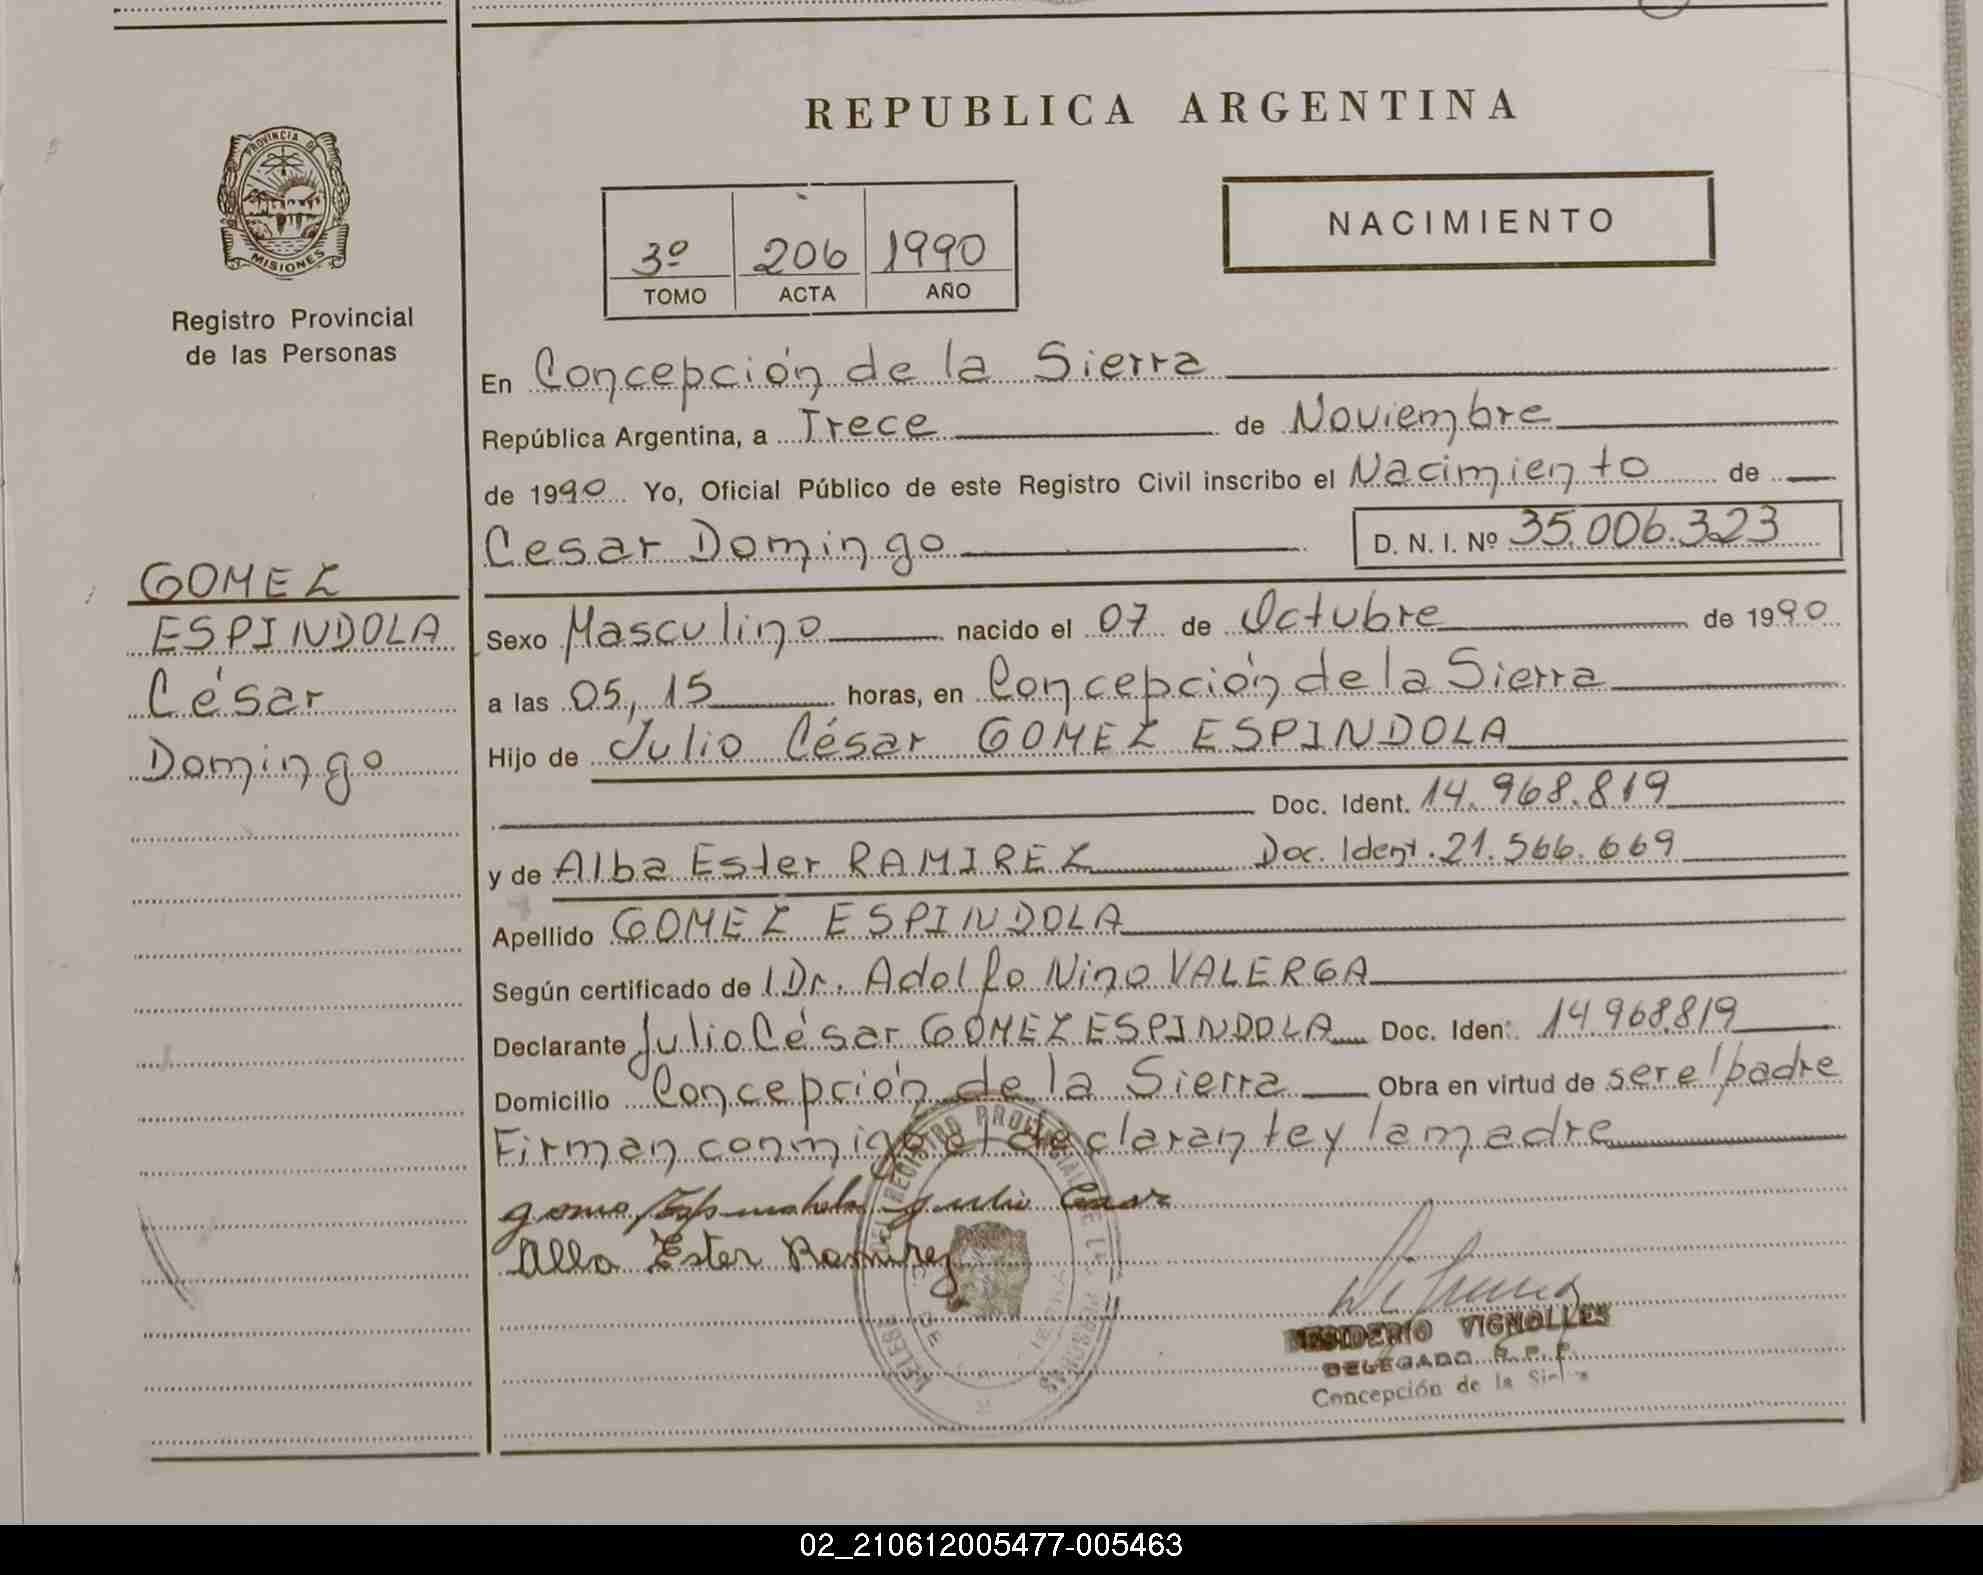 PROVINCIA DE
MISIONES
Registro Provincial
de las Personas
GOMEZ
ESPINDOLA
César
Domingo
REPUBLICA ARGENTINA
3º 206 1990
TOMO ACTA AÑO
NACIMIENTO
En Concepción de la Sierra
República Argentina, a Trece de Noviembre
de 1990 Yo, Oficial Público de este Registro Civil inscribo el Nacimiento de
Cesar Domingo D. N. I. Nº 35.006.323
Sexo Masculino nacido el 07 de Octubre de 1990
a las 05,15 horas, en Concepción de la Sierra
Hijo de Julio César GOMEZ ESPINDOLA
Doc. Ident. 14.968.819
y de Alba Ester RAMIREZ Doc. Ident. 21.566.669
Apellido GOMEZ ESPINDOLA
Según certificado del Dr. Adolfo Nino VALERGA
Declarante Julio César GOMEZ ESPINDOLA Doc. Iden. 14968.819
Domicilio Concepción de la Sierra Obra en virtud de ser el padre
Firman conmigo el declarante y la madre
Gomes Espindola Julio Cesar
Alba Ester Ramirez
DESIDERIO VIGNOLLES
DELEGADO R. P. P.
Concepción de la Sierra
02_210612005477-005463